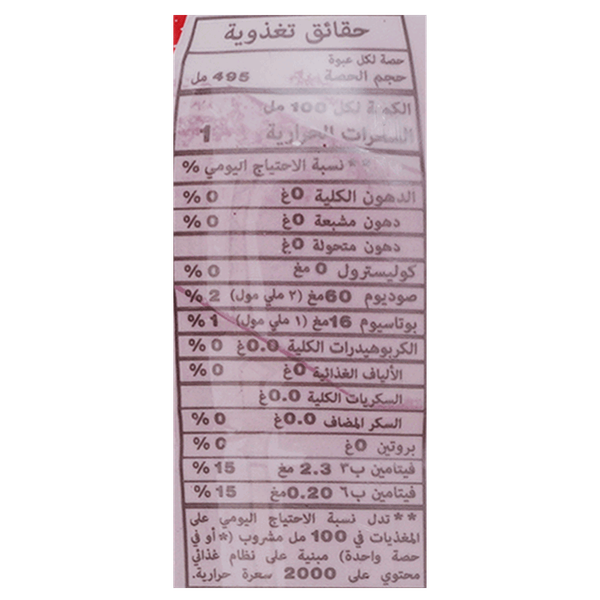 حقائق تغذوية
حصة لكل عبوة
حجم الحصة 495 مل
الكمية لكل 100 مل
السعرات الحرارية 1
** نسبة الاحتياج اليومي %
الدهون الكلية 0غ 0 %
دهون مشبعة 0غ 0 %
دهون متحولة 0غ
كوليسترول 0 مغ 0 %
صوديوم 60مغ (٢ ملي مول) 2 %
بوتاسيوم 16مغ (١ ملي مول) 1 %
الكربوهيدرات الكلية 0.0غ 0 %
الألياف الغذائية 0غ 0 %
السكريات الكلية 0.0غ
السكر المضاف 0.0غ 0 %
بروتين 0غ 0 %
فيتامين ب٣ 2.3 مغ 15 %
فيتامين ب٦ 0.20مغ 15 %
**تدل نسبة الاحتياج اليومي على
المغذيات في 100 مل مشروب (*أو في
حصة واحدة) مبنية على نظام غذائي
محتوي على 2000 سعرة حرارية.